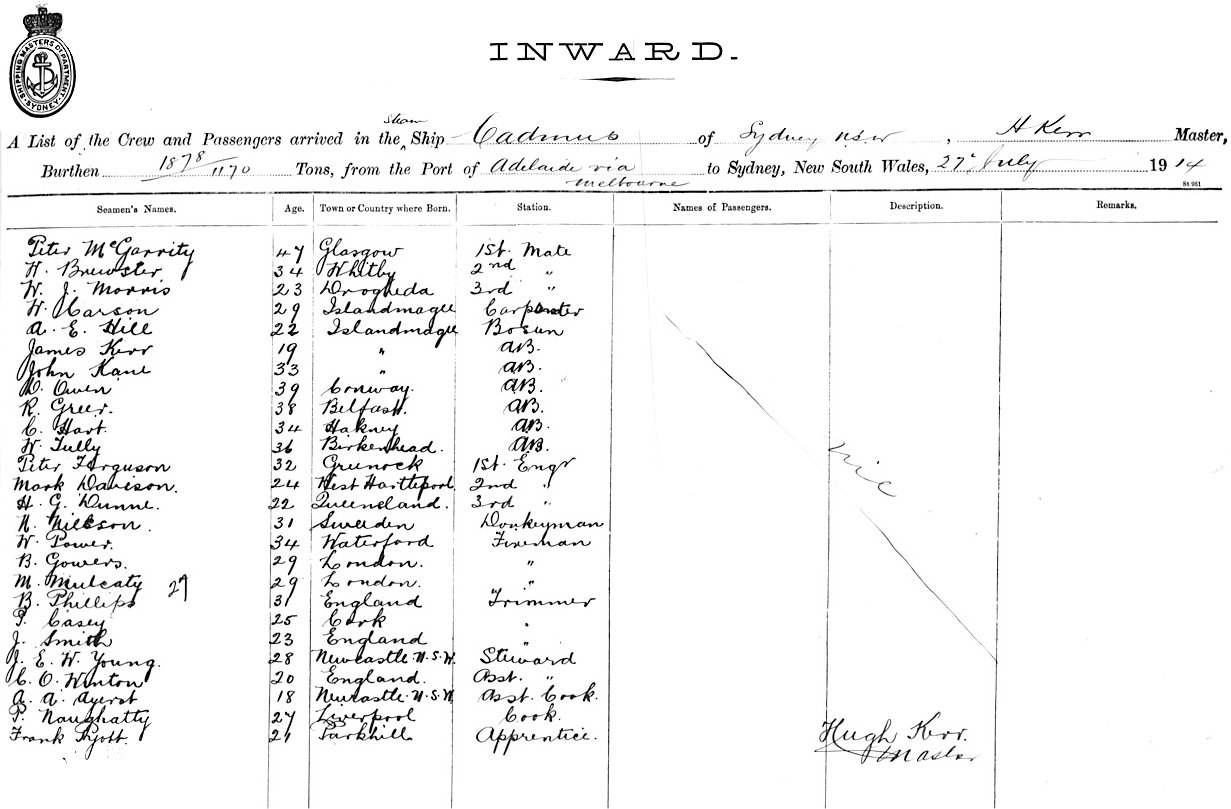 SHIPPING MASTERS DEPARTMENT. SYDNEY.
INWARD.
Steam
A List of the Crew and Passengers arrived in the ^ Ship Cadmus of Sydney NSW, H Kerr Master,
Burthen 1878/1170 Tons, from the Port of Adelaide via to Sydney, New South Wales, 27th July 1914
Melbourne
St 951
Seamen's Names. Age. Town or Country where Born. Station. Names of Passengers. Description. Remarks.
Peter McGarrity 47 Glasgow 1st. Mate
H. Brewster 34 Whitby 2nd "
W. J. Morris 23 Drogheda 3rd "
W. Carson 29 Islandmagee Carpenter
A. E. Hill 22 Islandmagee Bosun
James Kerr 19 " AB.
John Kane 33 " AB.
D. Owen 39 Conway. AB.
R. Greer. 38 Belfast. AB.
C. Hart 34 Hakney AB.
W. Tully 36 Birkenhead. AB.
Peter Ferguson 32 Greenock 1st. Engr
Mark Davison. 24 West Hartlepool 2nd "
H. G. Dunne. 22 Queensland. 3rd "
N. Nielson. 31 Sweden Donkeyman
W. Power. 34 Waterford Fireman
B. Gowers. 29 London. "
M. Mulcaty 29 29 London. "
B. Phillips 31 England Trimmer
P. Casey 25 Cork "
J. Smith 23 England "
J. E. W. Young. 28 Newcastle. N.S.W. Steward
C. O. Winton 20 England. Asst. "
A. A. Ayerst 18 Newcastle. N.S.W. Asst. Cook.
P. Naughatty 27 Liverpool Cook.
Frank 21 Parkhill Apprentice.
Nil
Hugh Kerr.
Master